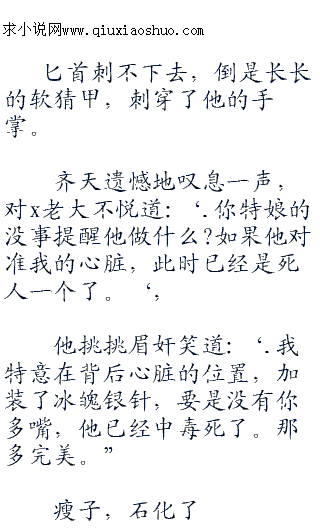 求小说网www.qiuxiaoshuo.com
匕首刺不下去，倒是长长
的软猜甲，刺穿了他的手
掌。
齐天遗憾地叹息一声，
对x老大不悦道：‘.你特娘的
没事提醒他做什么?如果他对
准我的心脏，此时已经是死
人一个了。‘，
他挑挑眉奸笑道：‘.我
特意在背后心脏的位置，加
装了冰魄银针，要是没有你
多嘴，他已经中毒死了。那
多完美。”
瘦子，石化了